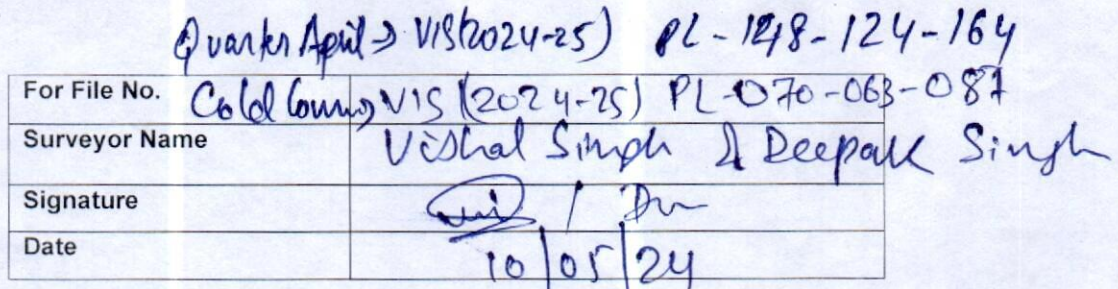 Quarter April → VIS(2024-25) PL-148-124-164
For File No. Cold → VIS (2024-25) PL-070-063-087
Surveyor Name Vishal Singh & Deepak Singh
Signature
Date 10/05/24